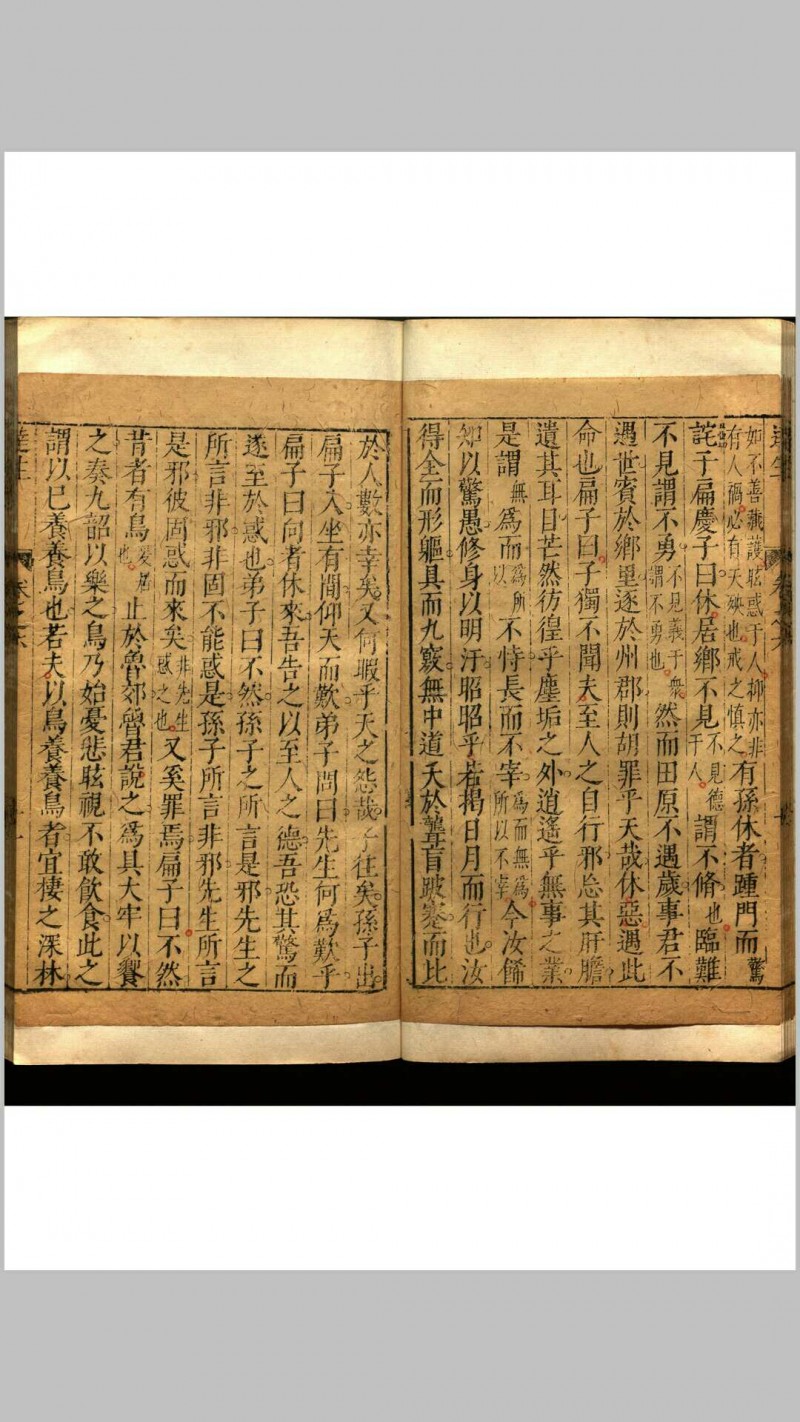 如不善養護眩惑于人抑亦非
有人禍必有天殃也戒之慎之有孫休者踵門而驚
詫子扁慶子曰休居鄉不見不見德于人謂不脩也臨難
不見謂不勇不見義于衆謂不勇也然而田原不遇歲事君不
遇世賓於鄉里逐於州郡則胡罪乎天哉休惡遇此
命也扁子曰子獨不聞夫至人之自行邪忘其肝膽
遺其耳目芒然彷徨乎塵垢之外逍遙乎無事之業
是謂無爲而無所以爲不恃長而不宰爲而無爲所以不宰今汝飾
知以驚愚修身以明汙昭昭乎若揭日月而行也汝
得全而形軀具而九竅無中道夭於聾盲跛蹇而比
於人數亦幸矣又何暇乎天之怨哉子往矣孫子出
扁子入坐有間仰天而歎弟子問曰先生何爲歎乎
扁子曰向者休來吾告之以至人之德吾恐其驚而
遂至於惑也弟子曰不然孫子之所言是邪先生之
所言非邪非固不能惑是孫子所言非邪先生所言
是邪彼固惑而來矣非先生惑之也又奚罪焉扁子曰不然
昔者有鳥爰居也止於魯郊魯君說之爲具大牢以饗
之奏九韶以樂之鳥乃始憂悲眩視不敢飲食此之
謂以已養養鳥也若夫以鳥養養鳥者宜棲之深林
達生
卷之六
十一